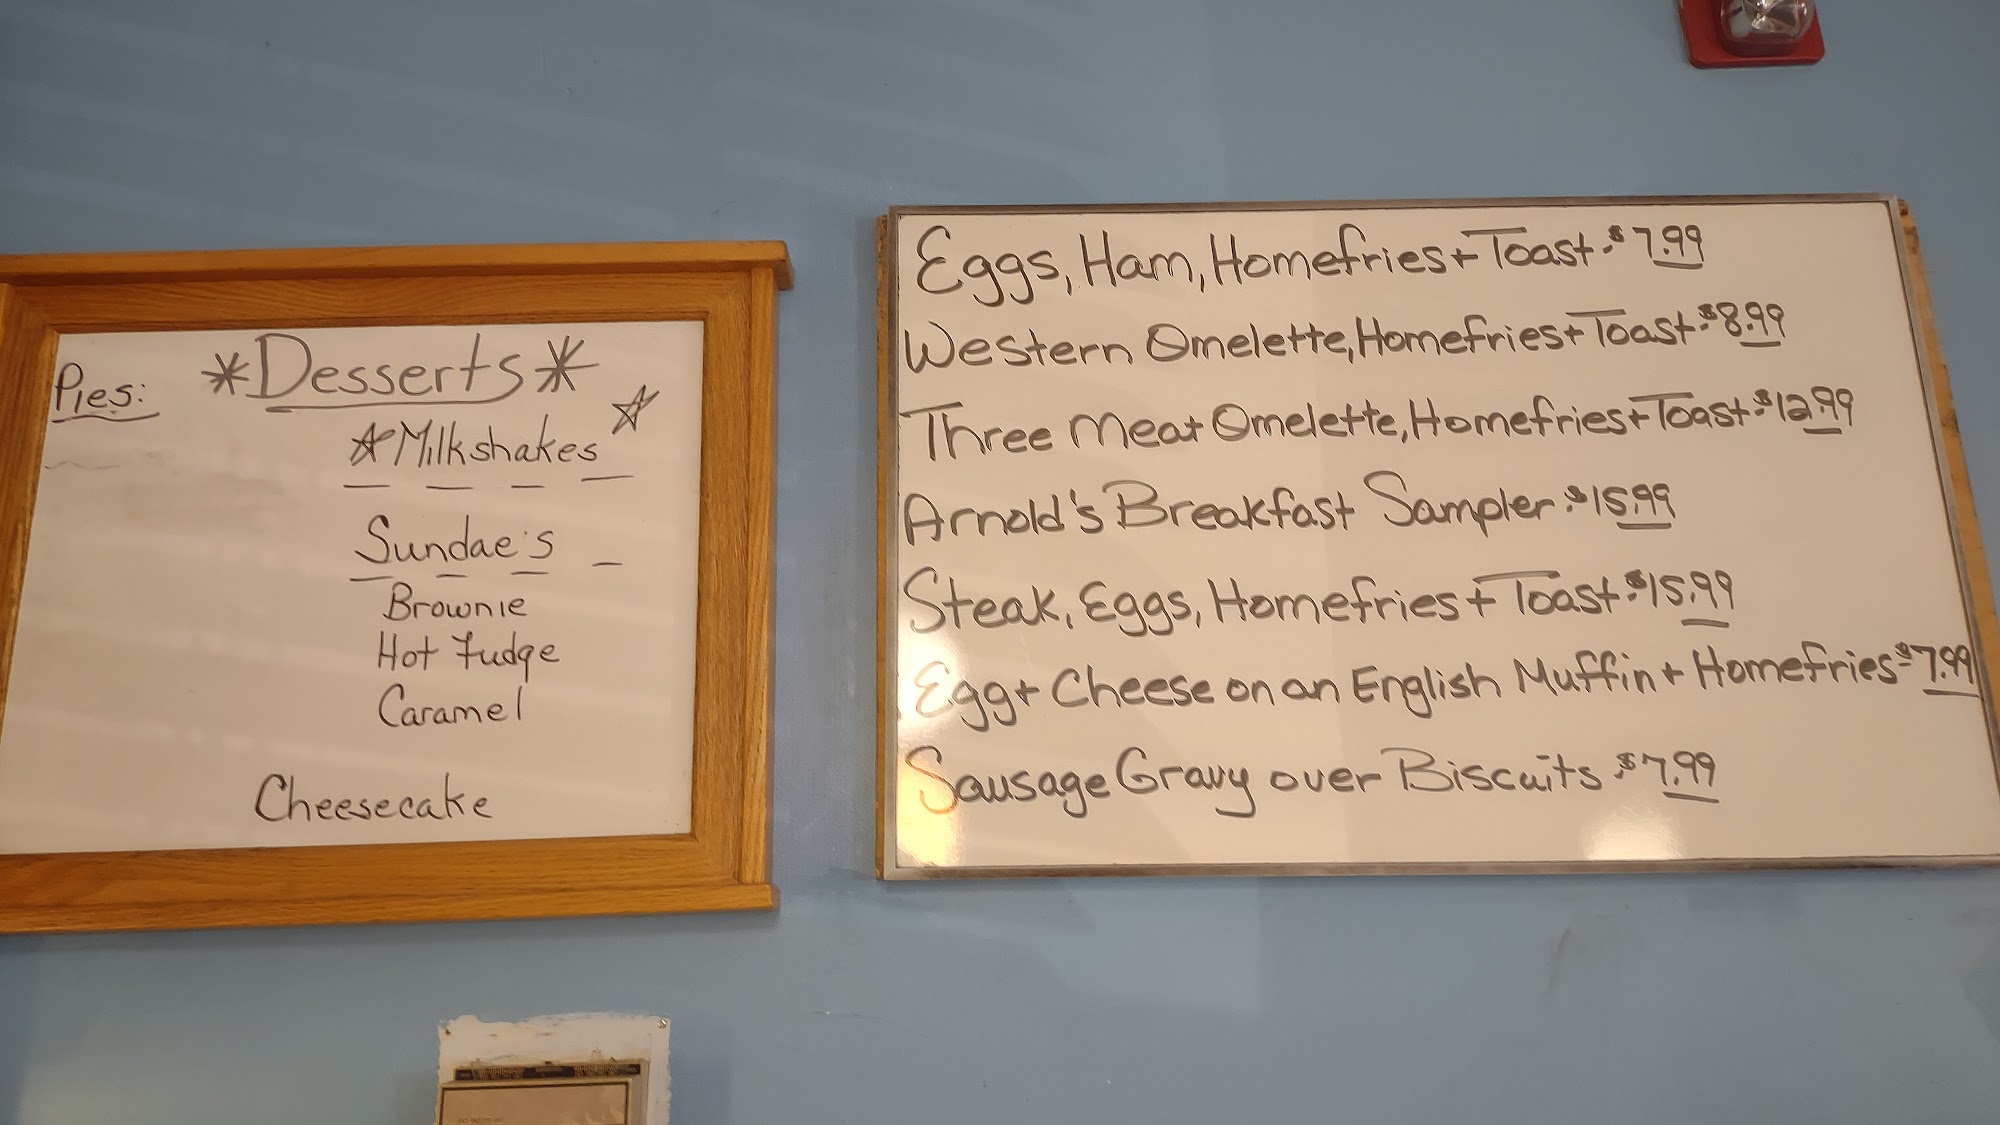 *Desserts*
Pies:
☆Milkshakes☆
Sundae's
Brownie
Hot Fudge
Caramel
Cheesecake
Eggs, Ham, Homefries + Toast. $7.99
Western Omelette, Homefries + Toast. $8.99
Three Meat Omelette, Homefries + Toast. $12.99
Arnold's Breakfast Sampler. $15.99
Steak, Eggs, Homefries + Toast. $15.99
Egg + Cheese on an English Muffin + Homefries $7.99
Sausage Gravy over Biscuits. $7.99